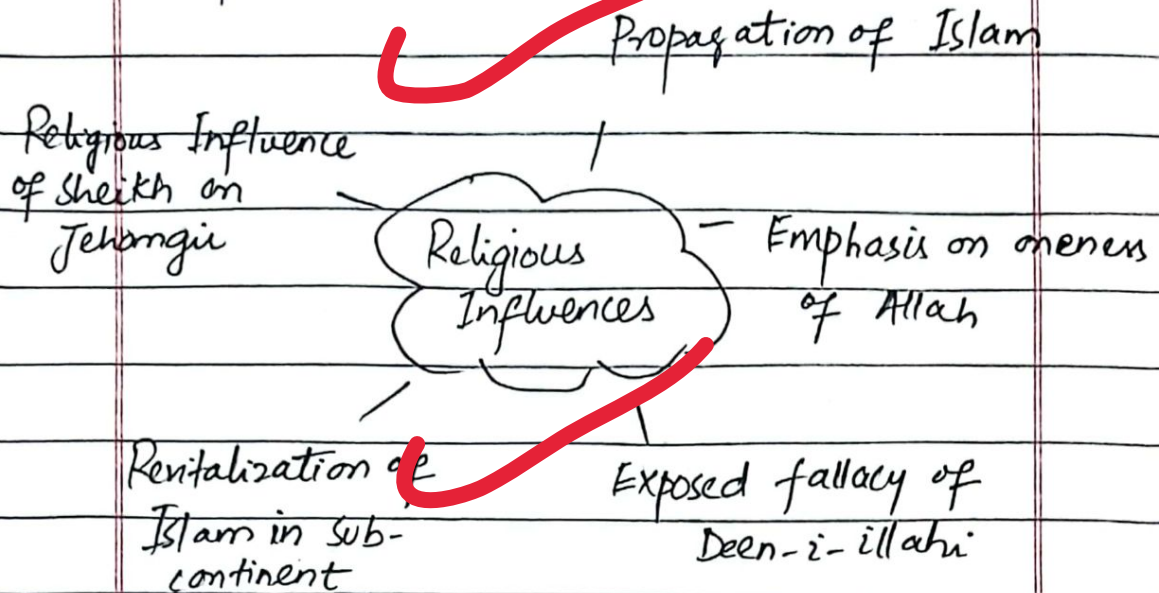 Propagation of Islam
Religious Influence
of Sheikh on
Jehangir
Religious
Influences
Emphasis on oneness
of Allah
Revitalization of
Islam in sub-
continent
Exposed fallacy of
Deen-i-illahi